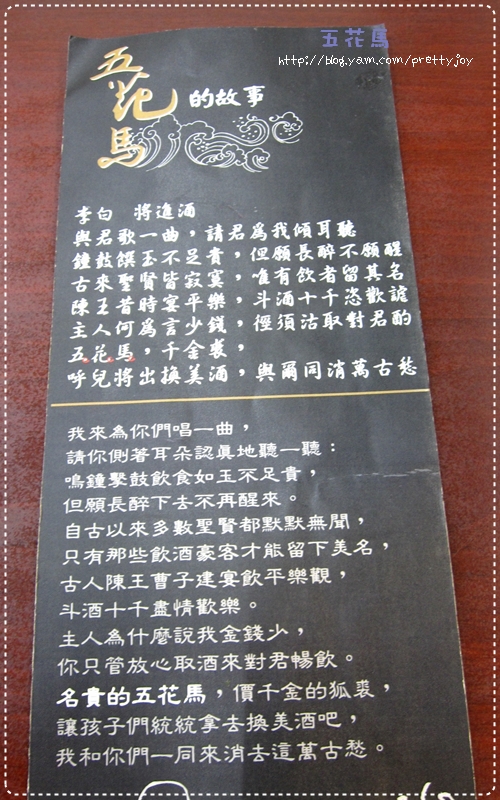 五花馬
http://blog.yam.com/prettyjoy
五花馬
的故事
李白　將進酒
與君歌一曲，請君為我傾耳聽
鐘鼓饌玉不足貴，但願長醉不願醒
古來聖賢皆寂寞，唯有飲者留其名
陳王昔時宴平樂，斗酒十千恣歡謔
主人何為言少錢，徑須沽取對君酌
五花馬，千金裘，
呼兒將出換美酒，與爾同消萬古愁
我來為你們唱一曲，
請你側著耳朵認真地聽一聽：
鳴鐘擊鼓飲食如玉不足貴，
但願長醉下去不再醒來。
自古以來多數聖賢都默默無聞，
只有那些飲酒豪客才能留下美名，
古人陳王曹子建宴飲平樂觀，
斗酒十千盡情歡樂。
主人為什麼說我金錢少，
你只管放心取酒來對君暢飲。
名貴的五花馬，價千金的狐裘，
讓孩子們統統拿去換美酒吧，
我和你們一同來消去這萬古愁。